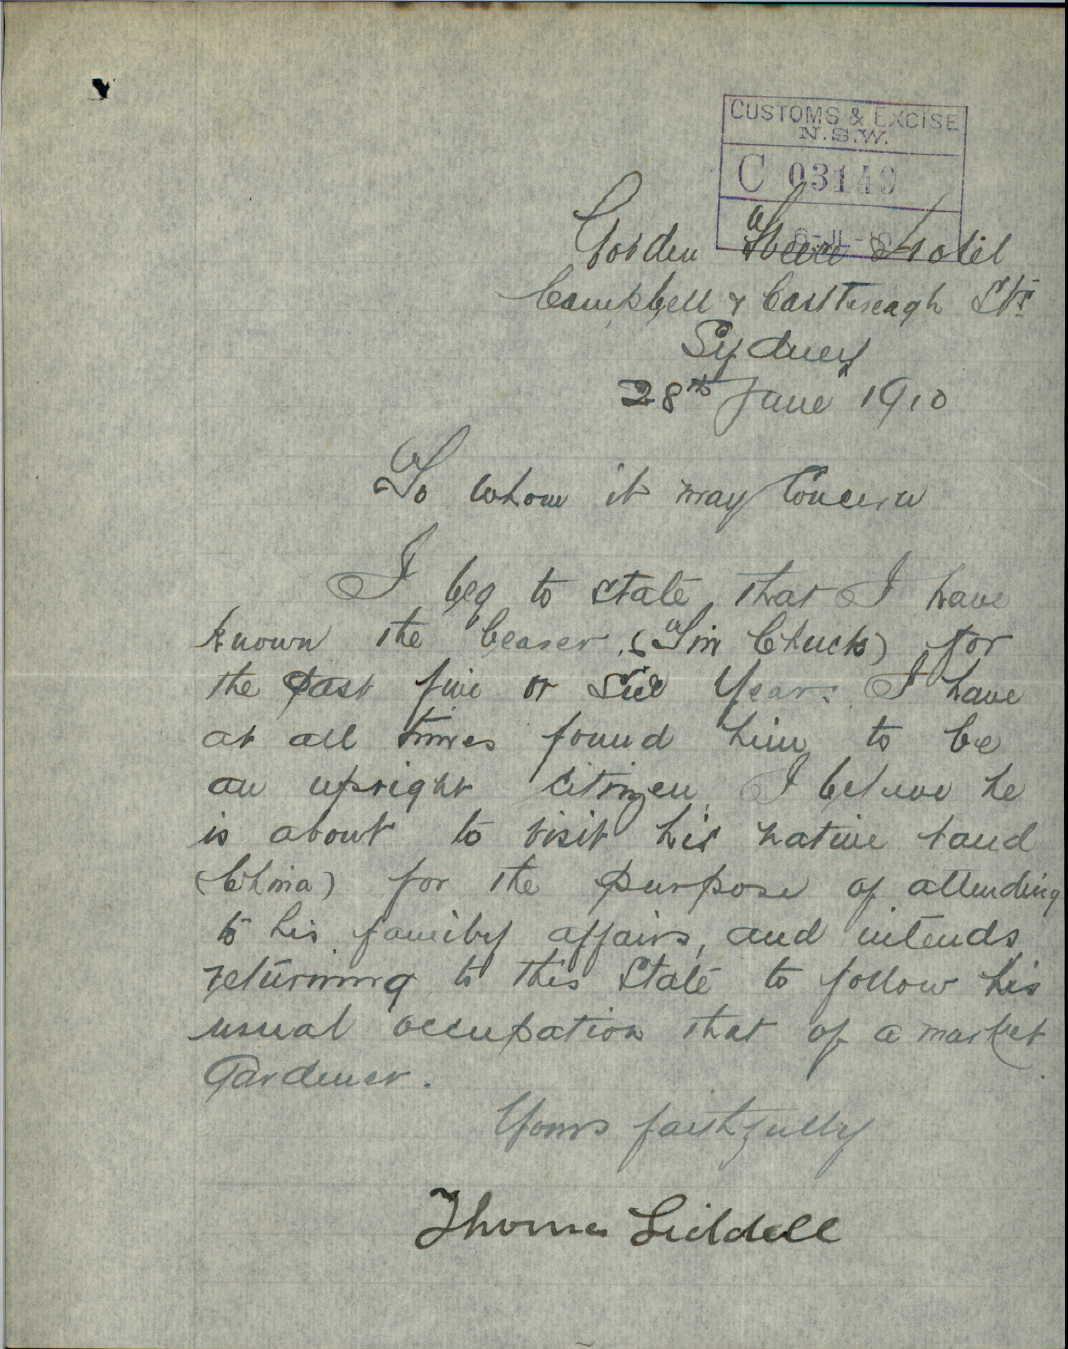 CUSTOMS & EXCISE
N.S.W.
C 03149
6-JL-10
Golden Hotel
Campbell & Castlereagh Sts
Sydney
28th June 1910
To whom it may Concern
I beg to state that I have
known the bearer, (Tim Chuck) for
the past five or six Years. I have
at all times found him to be
an upright citizen, I believe he
is about to visit his native land
(China) for the purpose of attending
to his family affairs, and intends
returning to this State to follow his
usual occupation that of a market
Gardener.
Yours faithfully
Thomas Liddell